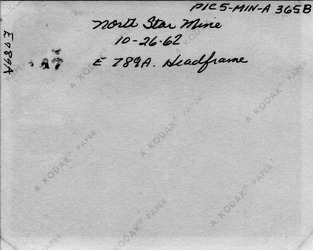 PIC 5-MIN-A 365B
North Star Mine
10-26-62
E 789A. Headframe
E789A
A KODAK PAPER
A KODAK PAPER
A KODAK PAPER
A KODAK PAPER
A KODAK PAPER
A KODAK PAPER